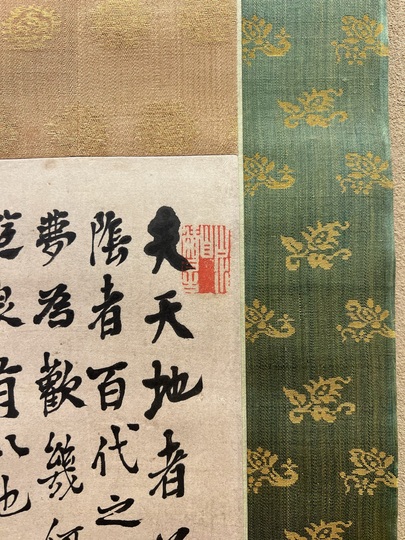 夫天地者
陰者百代之
夢為歡幾何
遊良有以也